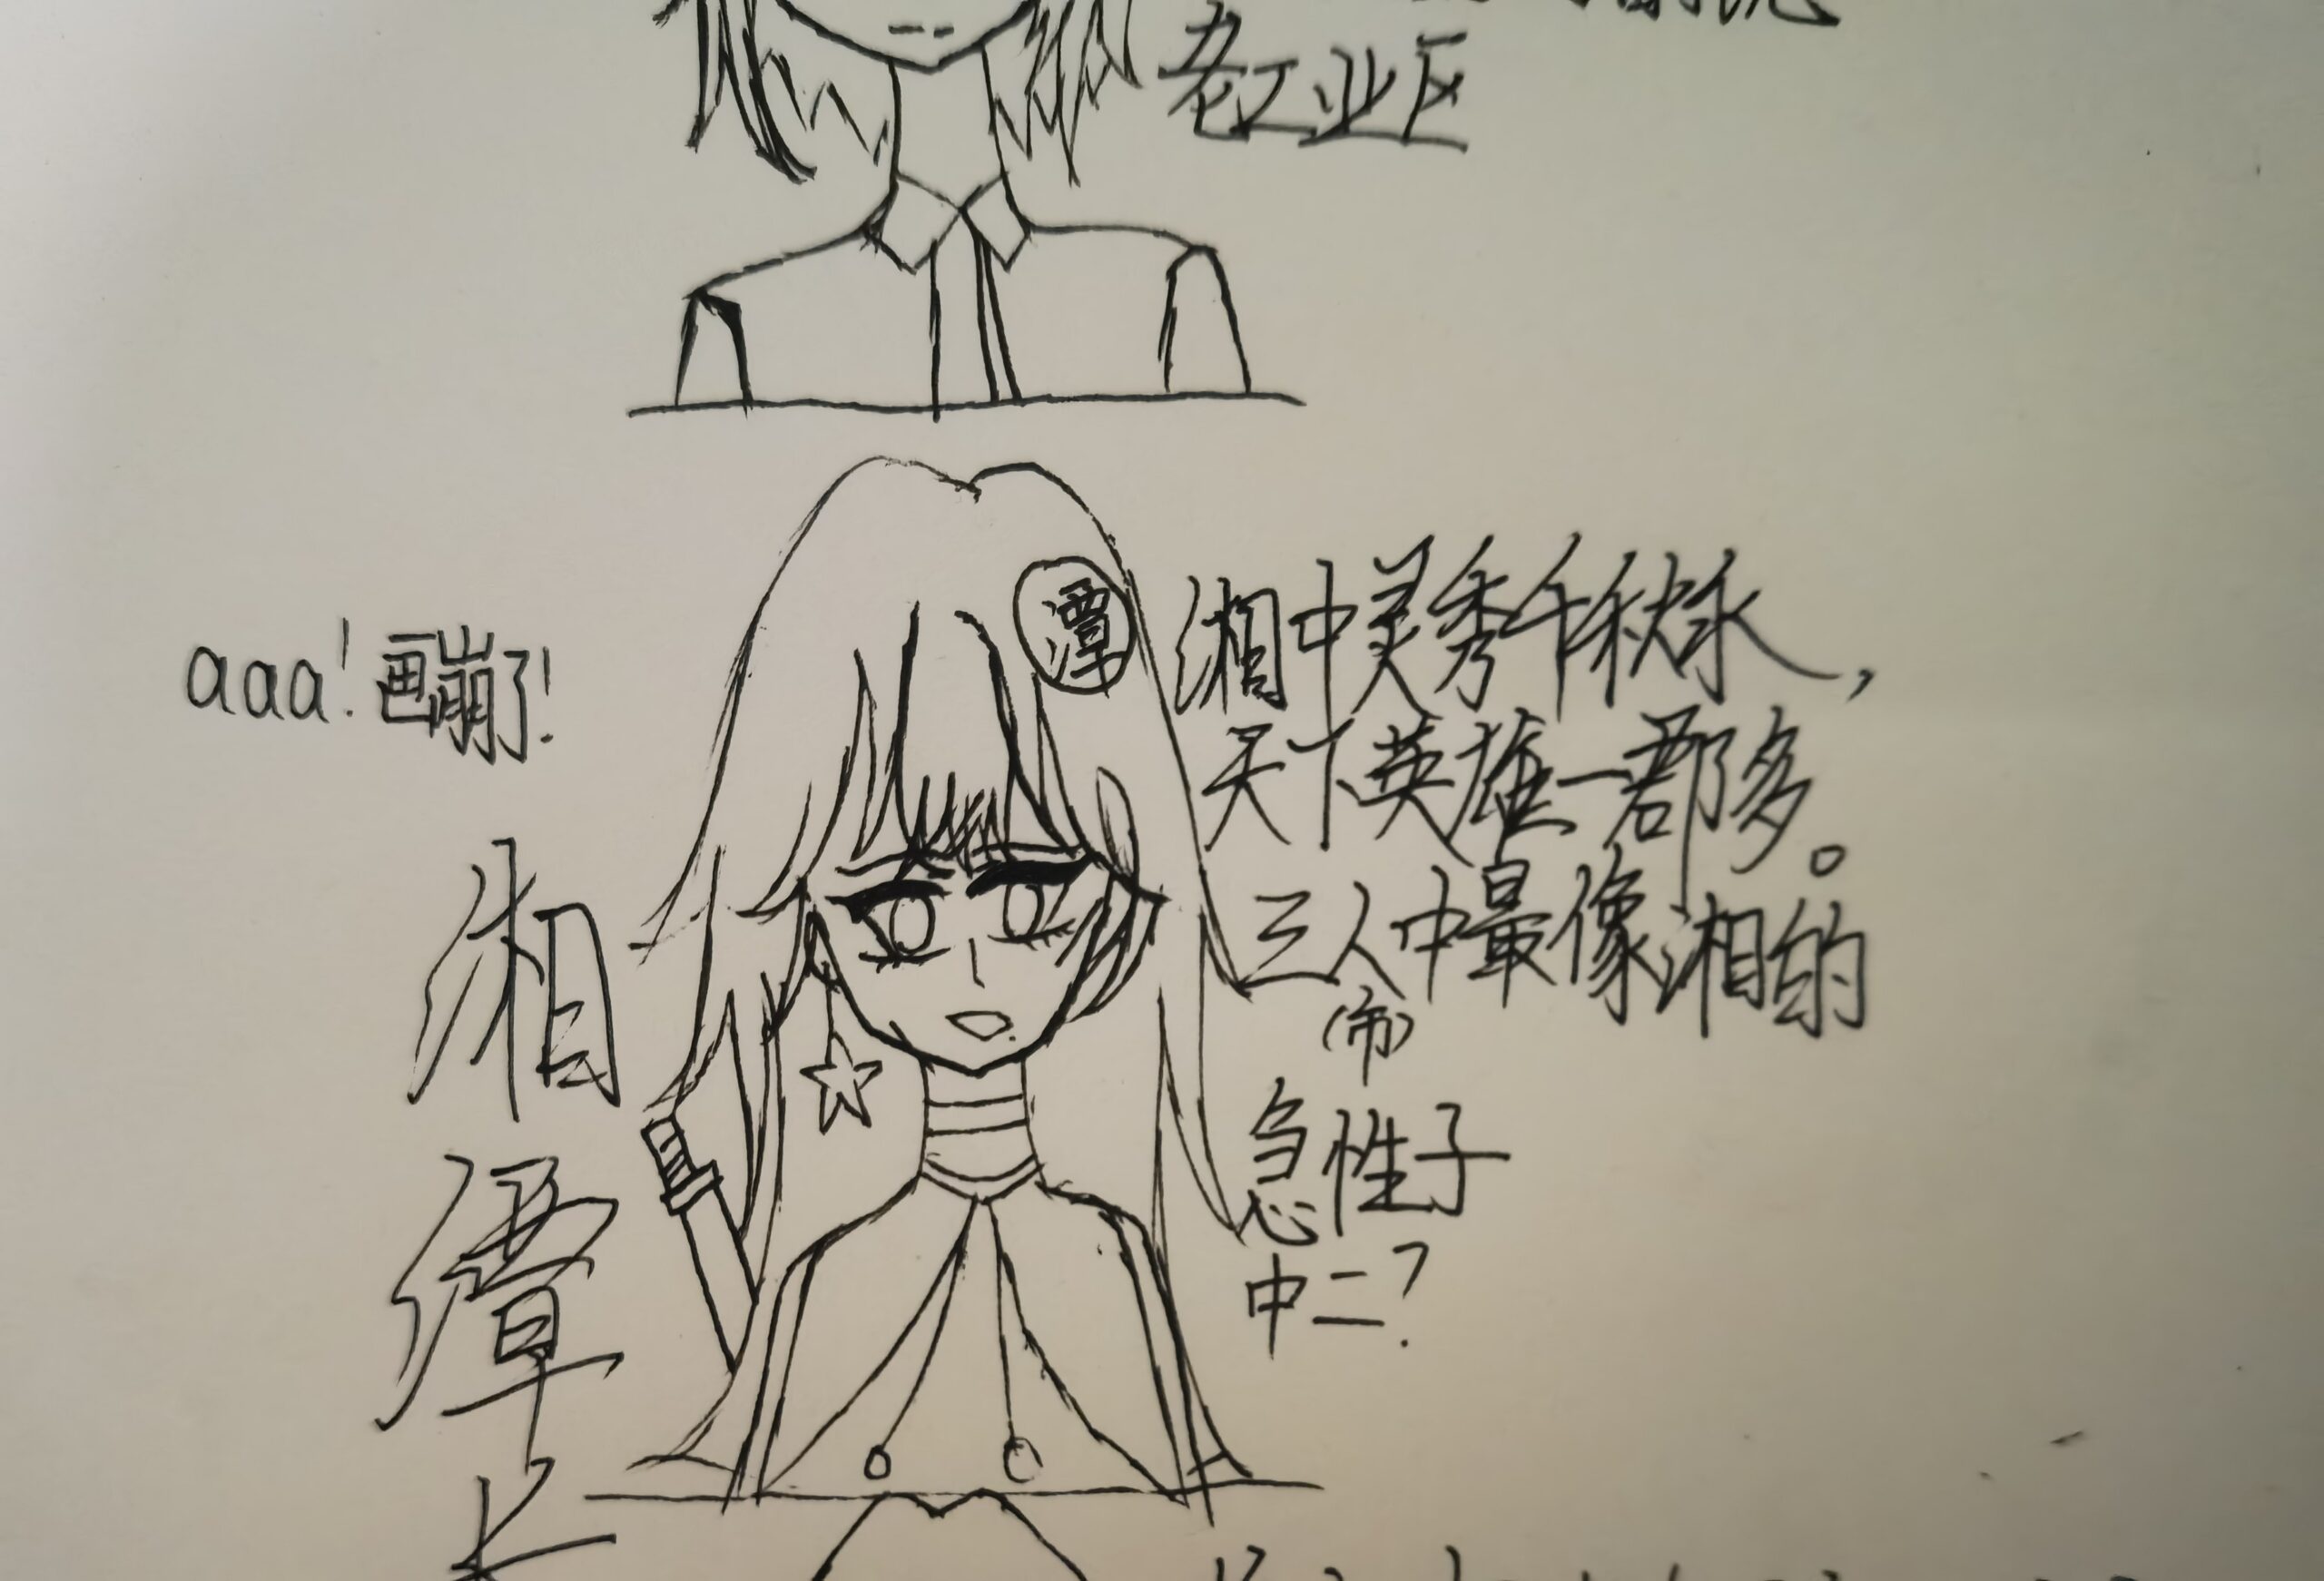 老工业区
潭
湘中灵秀千秋水，
天下英雄一郡多。
三人中最像湘的
（市）
急性子
中二？
aaa！画崩了！
湘潭